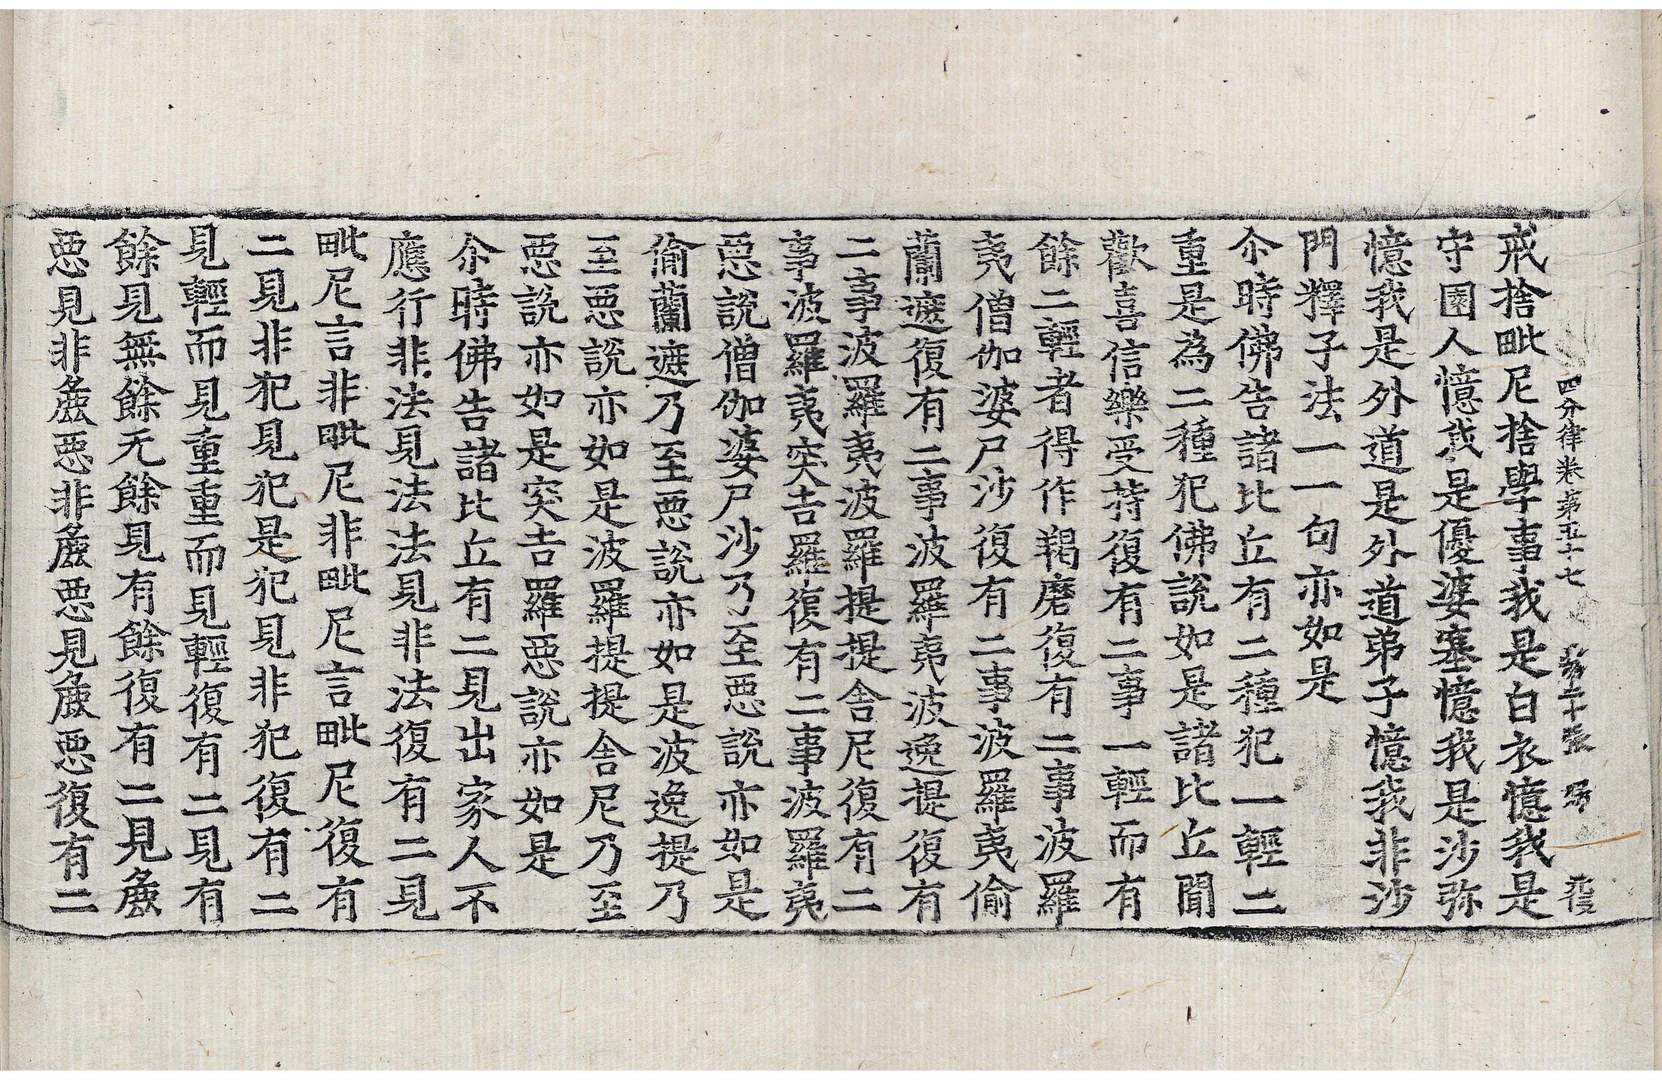 四分律卷第五十七 第二十張 殷
戒捨毗尼捨學事我是白衣憶我是
守園人憶我是優婆塞憶我是沙弥
憶我是外道是外道弟子憶我非沙
門釋子法一一句亦如是
尒時佛告諸比丘有二種犯一輕二
重是為二種犯佛說如是諸比丘聞
歡喜信樂受持復有二事一輕而有
餘二輕者得作羯磨復有二事波羅
夷僧伽婆尸沙復有二事波羅夷偷
蘭遮復有二事波羅夷波逸提復有
二事波羅夷波羅提提舍尼復有二
事波羅夷突吉羅復有二事波羅夷
惡說僧伽婆尸沙乃至惡說亦如是
偷蘭遮乃至惡說亦如是波逸提乃
至惡說亦如是波羅提提舍尼乃至
惡說亦如是突吉羅惡說亦如是
尒時佛告諸比丘有二見出家人不
應行非法見法法見非法復有二見
毗尼言非毗尼非毗尼言毗尼復有
二見非犯見犯是犯見非犯復有二
見輕而見重重而見輕復有二見有
餘見無餘无餘見有餘復有二見麁
惡見非麁惡非麁惡見麁惡復有二